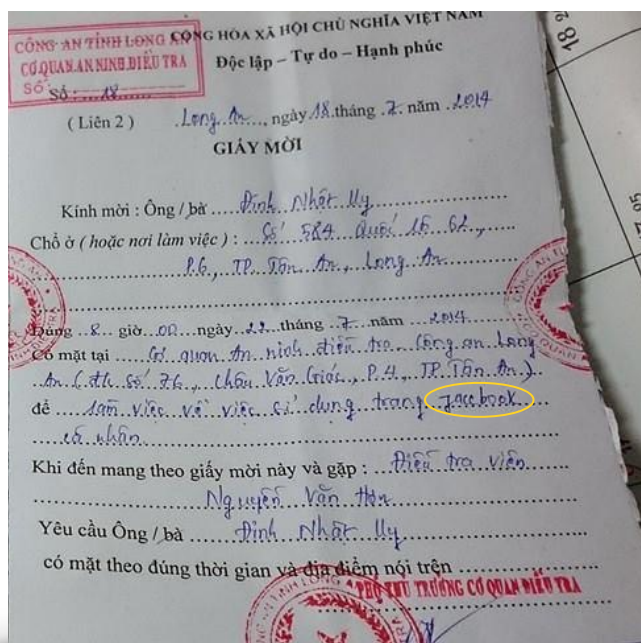 CÔNG AN TỈNH LONG AN
CƠ QUAN AN NINH ĐIỀU TRA
Số
Số: 18
CỘNG HÒA XÃ HỘI CHỦ NGHĨA VIỆT NAM
Độc lập – Tự do – Hạnh phúc
( Liên 2 )
Long An, ngày 18 tháng 7 năm 2014
GIẤY MỜI
Kính mời : Ông / bà Đinh Nhật Uy
Chỗ ở ( hoặc nơi làm việc ) : Số 584 Quốc lộ 62,
P.6, TP. Tân An, Long An
Đúng 8 giờ 00 ngày 22 tháng 7 năm 2014
Có mặt tại Cơ quan An ninh điều tra Công an Long
An (đ/c số 76, Châu Văn Giác, P.4, TP. Tân An)
để làm việc về việc sử dụng trang facebook
cá nhân
Khi đến mang theo giấy mời này và gặp : Điều tra viên
Nguyễn Văn Hơn
Yêu cầu Ông / bà Đinh Nhật Uy
có mặt theo đúng thời gian và địa điểm nói trên
PHÓ THỦ TRƯỞNG CƠ QUAN ĐIỀU TRA
18